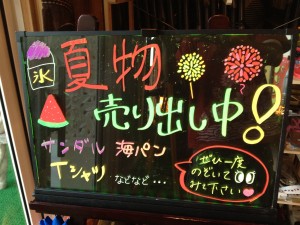 氷
夏物
売り出し中!
サンダル 海パン
Tシャツ などなど…
ぜひ一度
のぞいて
みて下さい